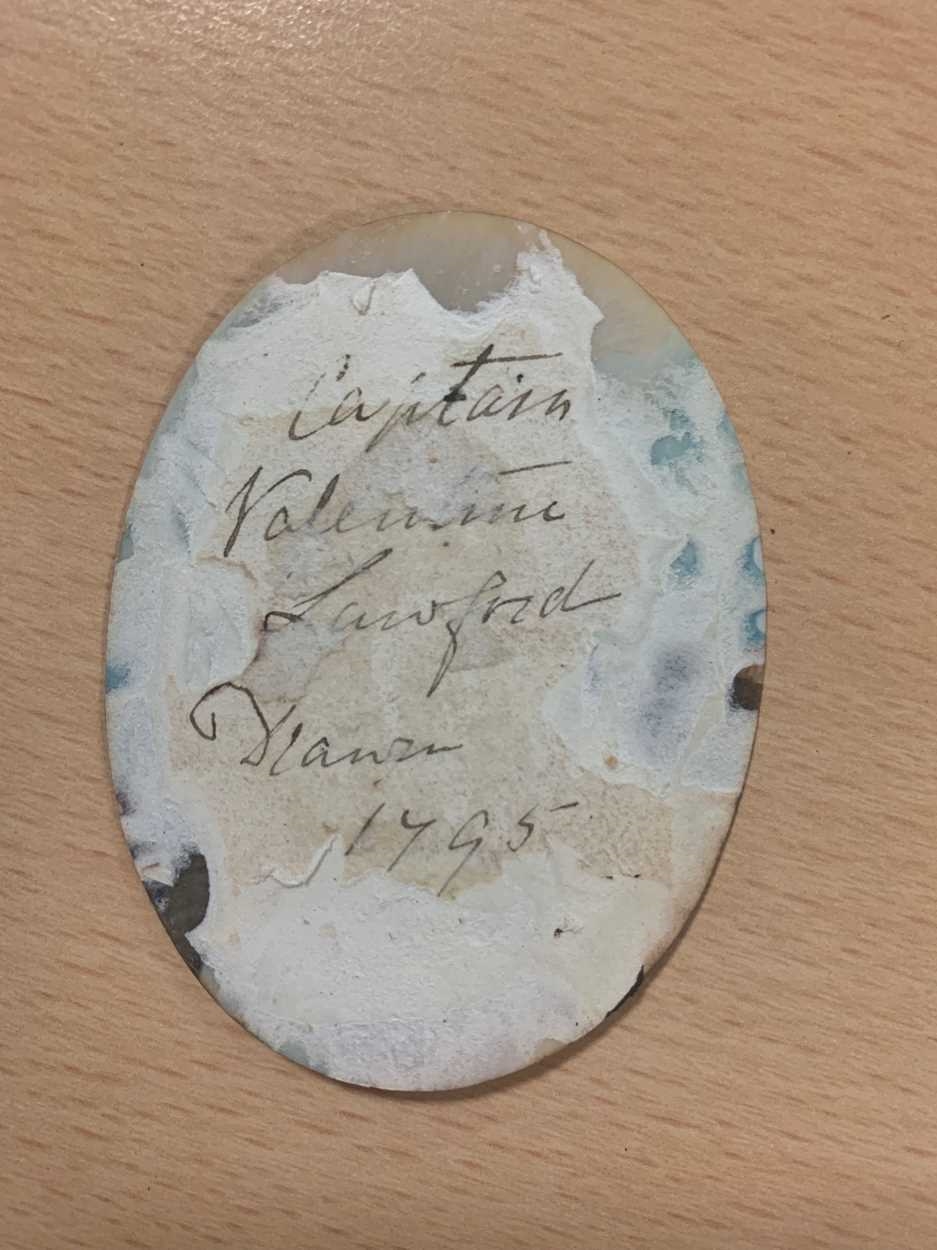 Captain
Valentine
Lawford
Drawn
1795